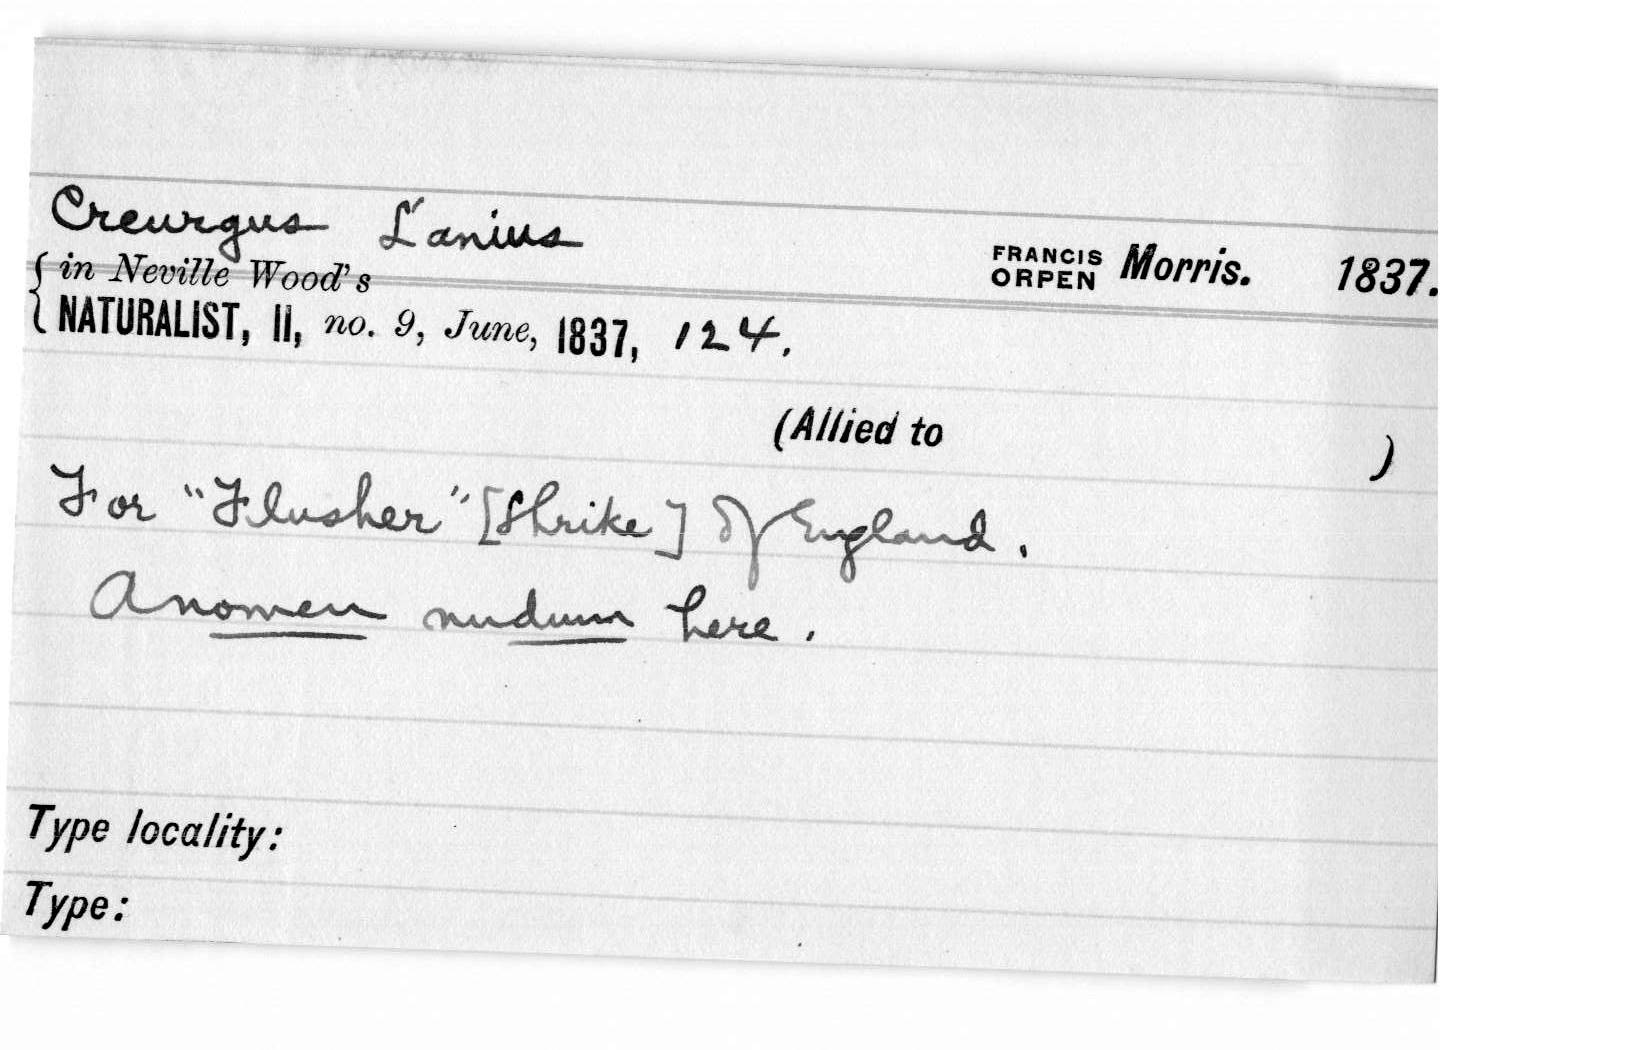 Creurgus Lanius
{ in Neville Wood's
FRANCIS ORPEN Morris. 1837.
NATURALIST, II, no. 9, June, 1837, 124.
(Allied to )
For "Flusher" [Shrike] of England.
A nomen nudum here.
Type locality:
Type: